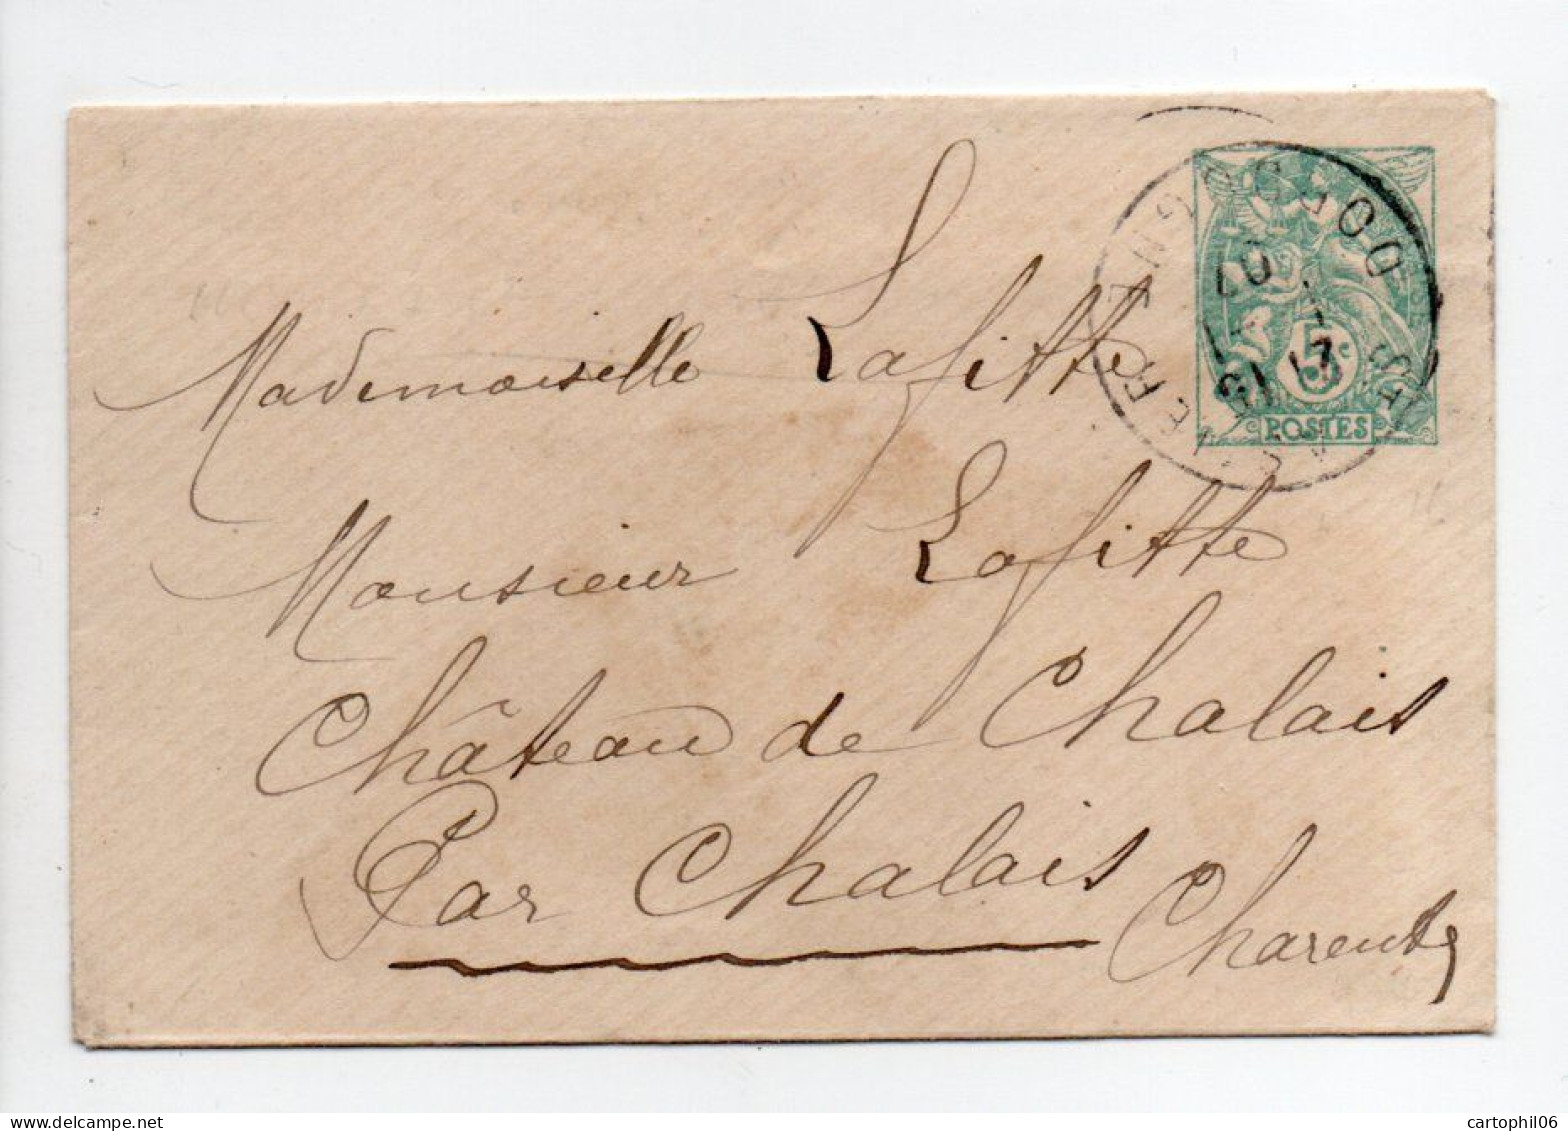 Mademoiselle Lafitte
Monsieur Lafitte
Château de Chalais
Par Chalais
Charente
5c
POSTES
cartophil06